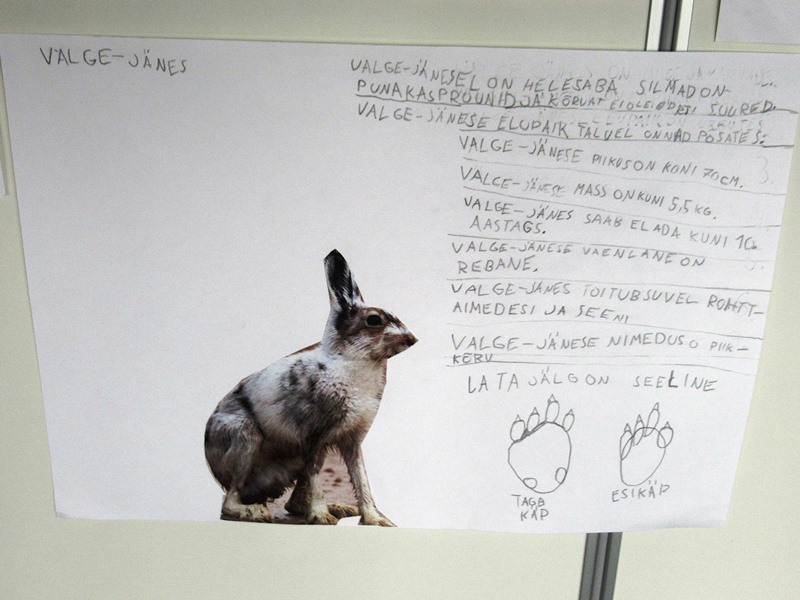 VALGE-JÄNES
VALGE-JÄNESEL ON HELESABA SILMAD ON
PUNAKASPRÖUNID JA KÕRVAT SUURED.
VALGE-JÄNESE ELUPAIK TALVEL ONNAD PÕSATES.
VALGE-JÄNESE PIKUSON KUNI 70CM.
VALGE-JÄNESE MASS ON KUNI 5,5 KG.
VALGE-JÄNES SAAB ELADA KUNI 10
AASTAGS.
VALGE-JÄNESE VAENLANE ON
REBANE.
VALGE-JÄNES TOITUB SUVEL ROHTT-
AIMEDESI JA SEENI
VALGE-JÄNESE NIMEDUS O PIIK-
KÕRV
LATA JÄLG ON SEELINE
TAGA
KÄP
ESIKÄP